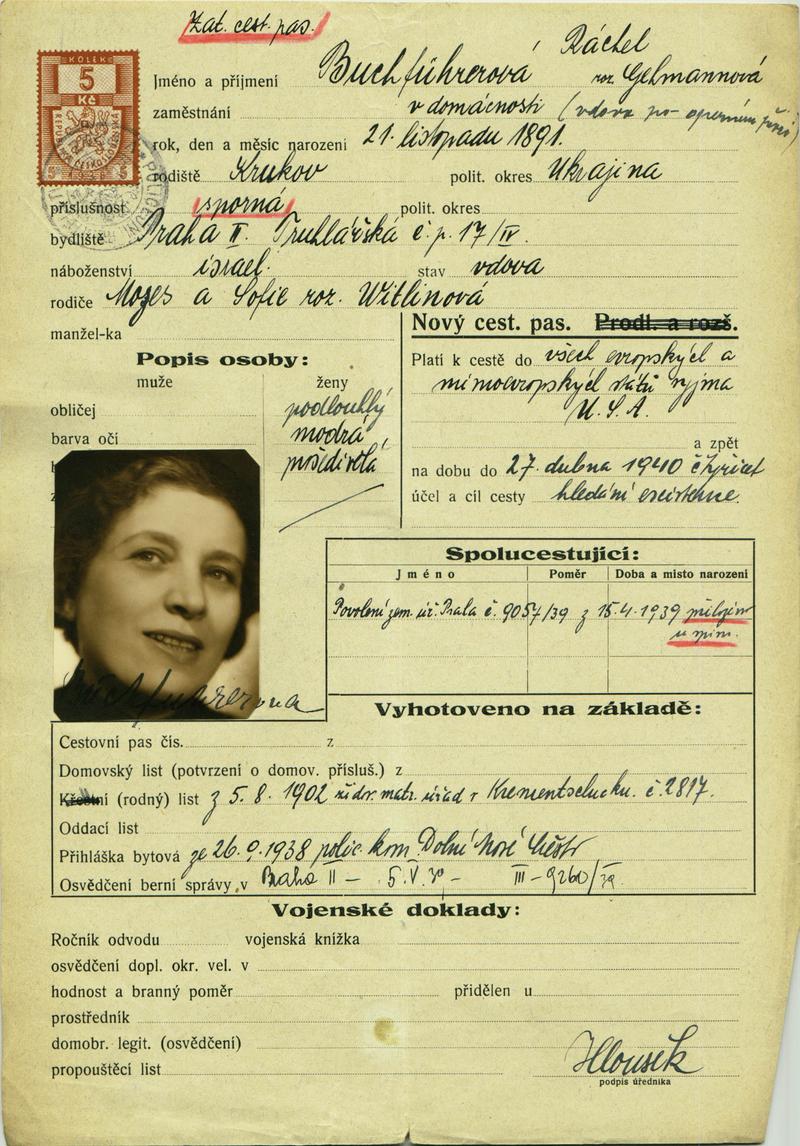 Zat. cest. pas.
KOLEK
5
Kč
Jméno a příjmení Buchführerová Ráchel
roz. Gehmannová
zaměstnání v domácnosti (vdova po operním
rok, den a měsíc narození 21. listopadu 1891.
rodiště Krukov polit. okres Ukrajina
příslušnost sporná polit. okres
bydliště Praha II. Truhlářská č.p. 17/IV.
náboženství israel. stav vdova
rodiče Mozes a Sofie roz. Witlinová
manžel-ka
Nový cest. pas. Prodl. a rozš.
Popis osoby:
muže ženy
obličej podlouhlý
barva očí modrá
prošedivělá
Platí k cestě do všech evropských a
mimoevropských států vyjma
U.S.A.
a zpět
na dobu do 27. dubna 1940 čtyřicet
účel a cíl cesty hledání existence.
Spolucestující:
Jméno Poměr Doba a místo narození
Povolení zem. úř. Praha č. 9057/39 z 15.4.1939 přiloženo
Buchführerova
Vyhotoveno na základě:
Cestovní pas čís. z
Domovský list (potvrzení o domov. přísluš.) z
Křestní (rodný) list z 5.8.1902 žid. matr. úřad v Krementschucku. č. 2817.
Oddací list
Přihláška bytová ze 26.9.1938 polic. kom. Dolní Nové Město
Osvědčení berní správy v Praha II – 5.V.39 – III – 9260/39.
Vojenské doklady:
Ročník odvodu vojenská knížka
osvědčení dopl. okr. vel. v
hodnost a branný poměr přidělen u
prostředník
domobr. legit. (osvědčení)
propouštěcí list
Hlousek
podpis úředníka